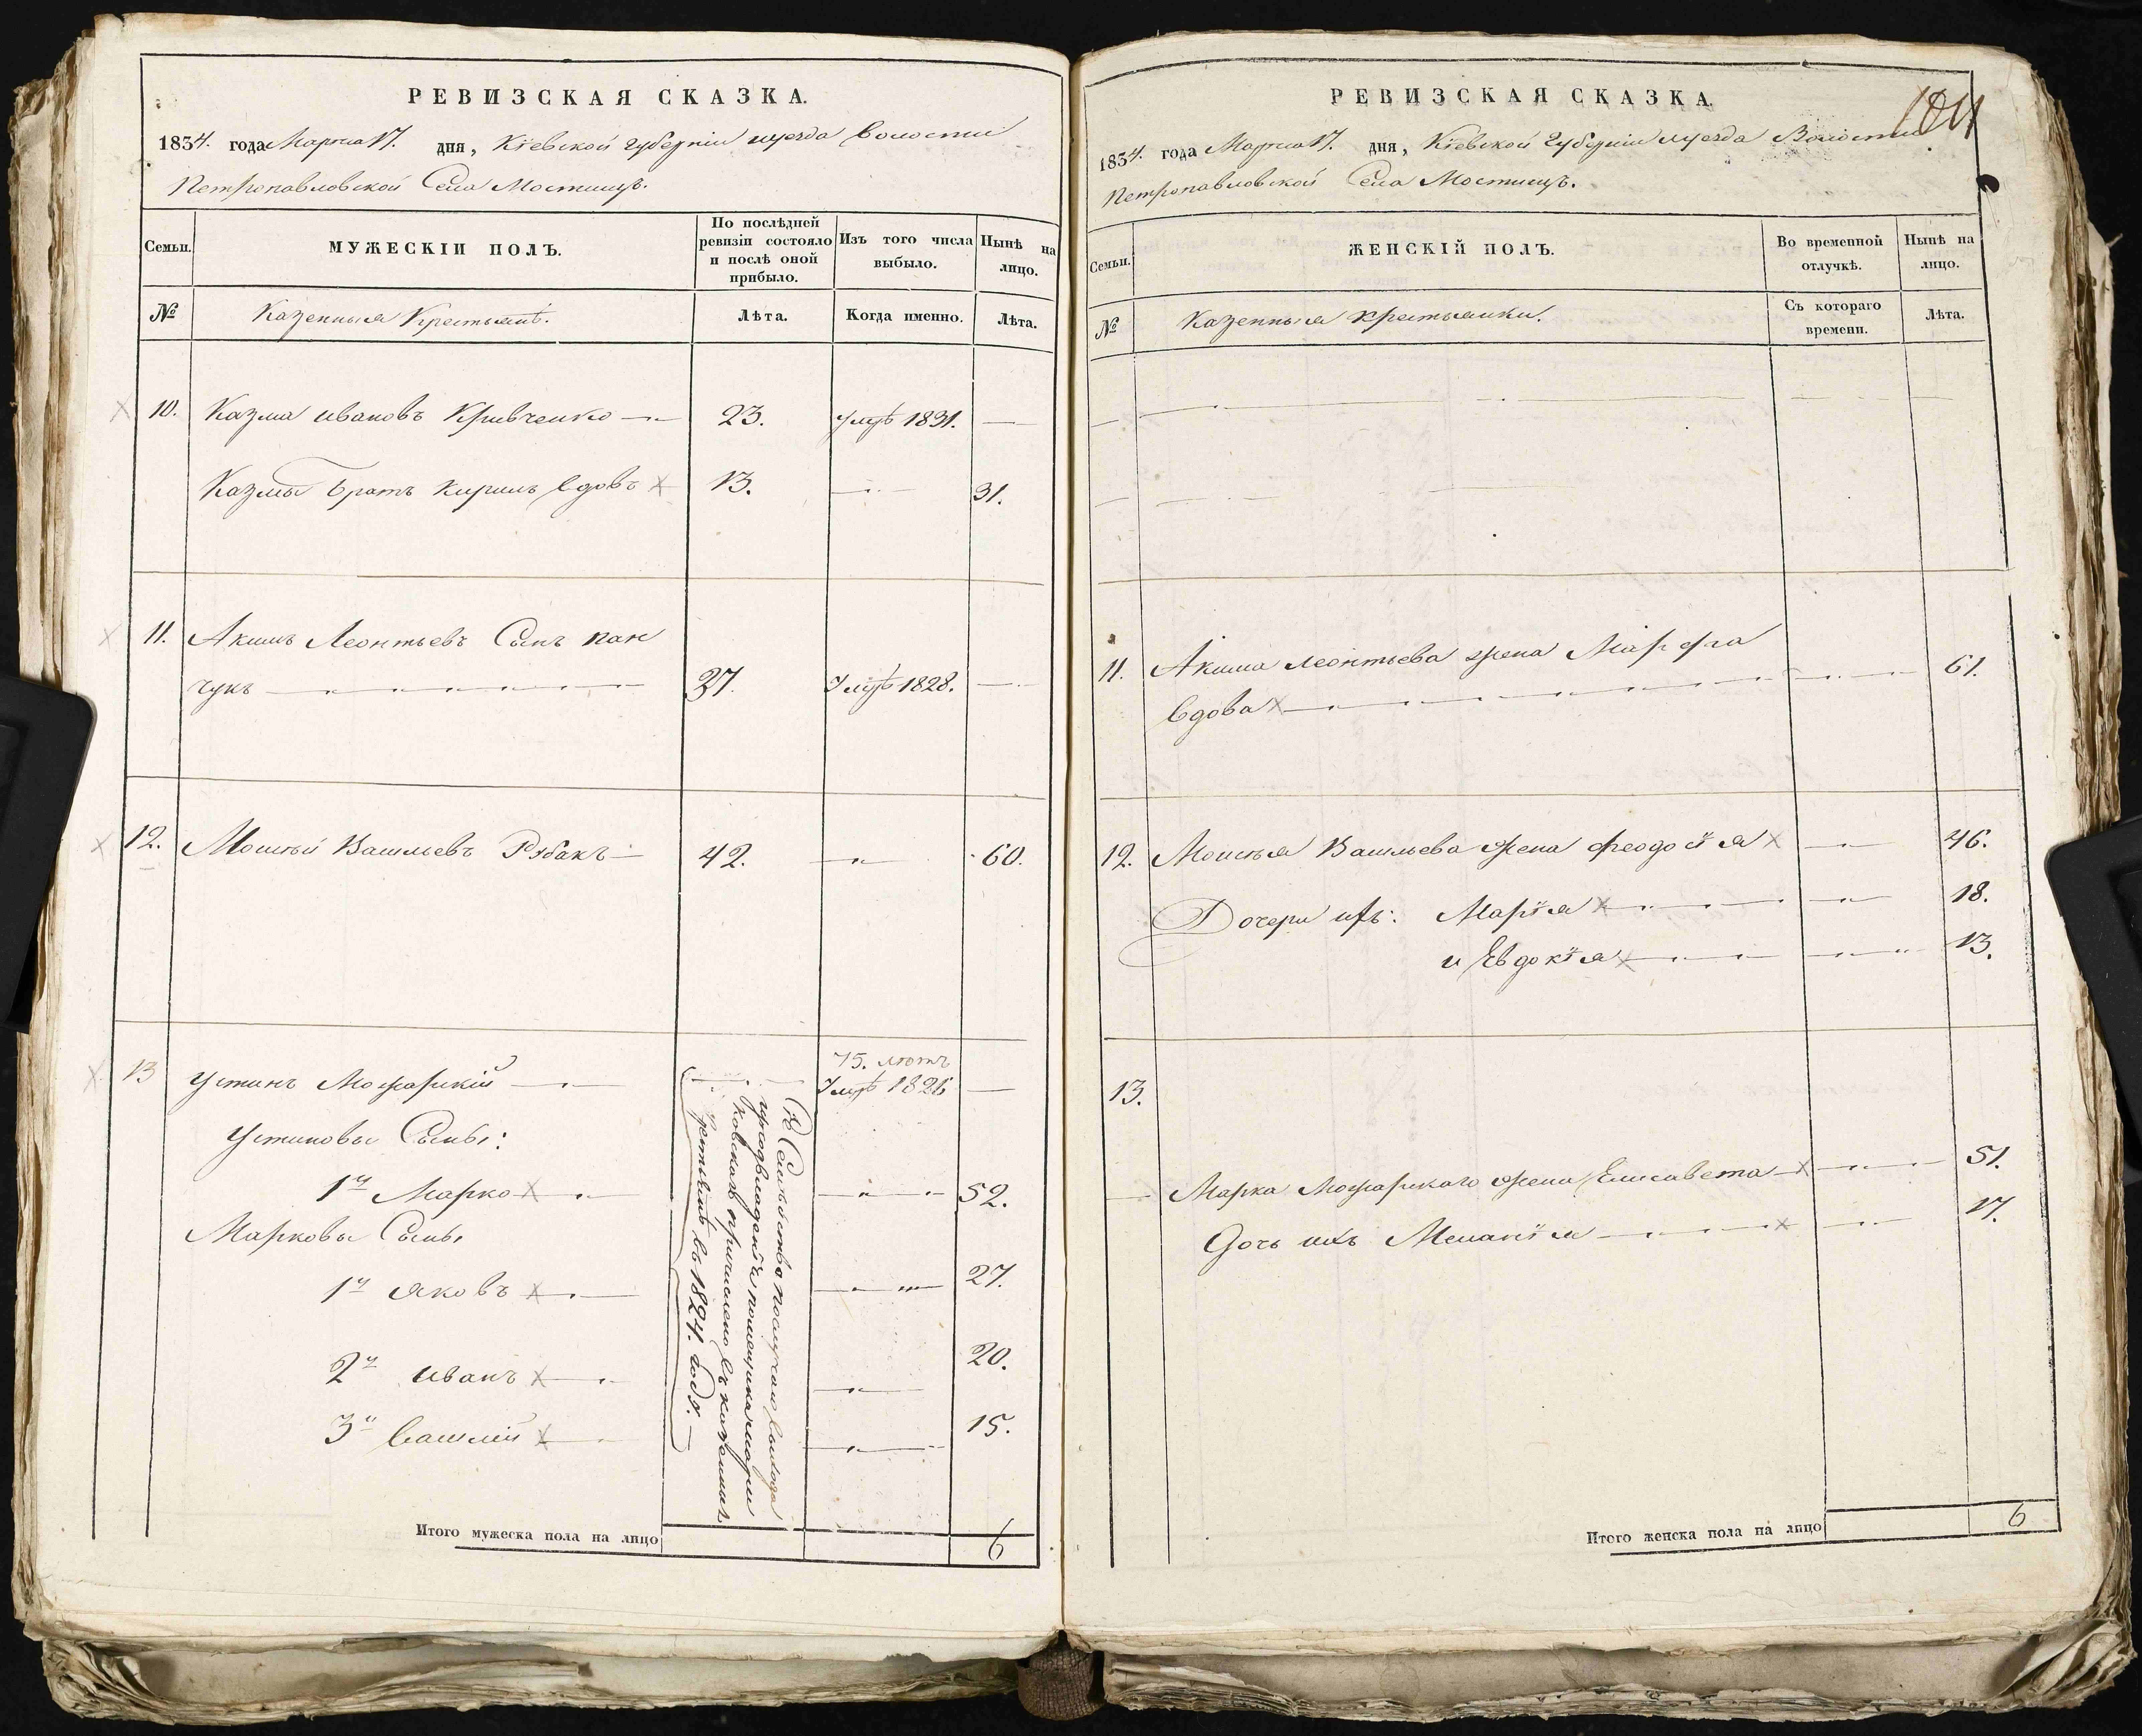 РЕВИЗСКАЯ СКАЗКА.
1834. года Марта 17. дня, Кіевской губерніи и уезда Волости
Петропавловской Села Мостищъ.
Семьи.
МУЖЕСКІЙ ПОЛЪ.
По послѣдней ревизіи состояло и послѣ оной прибыло.
Изъ того числа выбыло.
Нынѣ на лицо.
№
Казенныя Крестьянѣ.
Лѣта.
Когда именно.
Лѣта.
10. Казма Ивановъ Кривченко 23. Умрѣ 1831.
Казмы Братъ Кирилъ вдовъ 13. 31.
11. Акимъ Леонтьевъ Сынъ пан
чукъ 37. Умрѣ 1828.
12. Моисѣй Васильевъ Рубакъ 42. 60.
75. лѣтъ
13 Устинъ Можарскій Умрѣ 1826
Устиновы Сыны:
1й Марко 52.
Марковы Сыны
1й Яковъ 27.
2й Иванъ 20.
3й Василій 15.
Сіе Семѣйство
причислено въ казеннымъ
крестьянѣ въ 1824. Году.
Итого мужеска пола на лицо 6
РЕВИЗСКАЯ СКАЗКА.
1834. года Марта 17. дня, Кіевской Губерніи и уезда Волости
Петропавловской Села Мостищъ.
Семьи.
ЖЕНСКІЙ ПОЛЪ.
Во временной отлучкѣ.
Нынѣ на лицо.
№
Казенныя крестьянки.
Съ котораго времени.
Лѣта.
11. Акима Леонтьева жена Марфа
вдова 61.
12. Моисѣя Васильева жена Феодосія 46.
Дочери ихъ: Марія 18.
и Евдокія 13.
13.
Марка Можарскаго жена Елисавета 51.
Дочь ихъ Меланія 17.
Итого женска пола на лицо 6